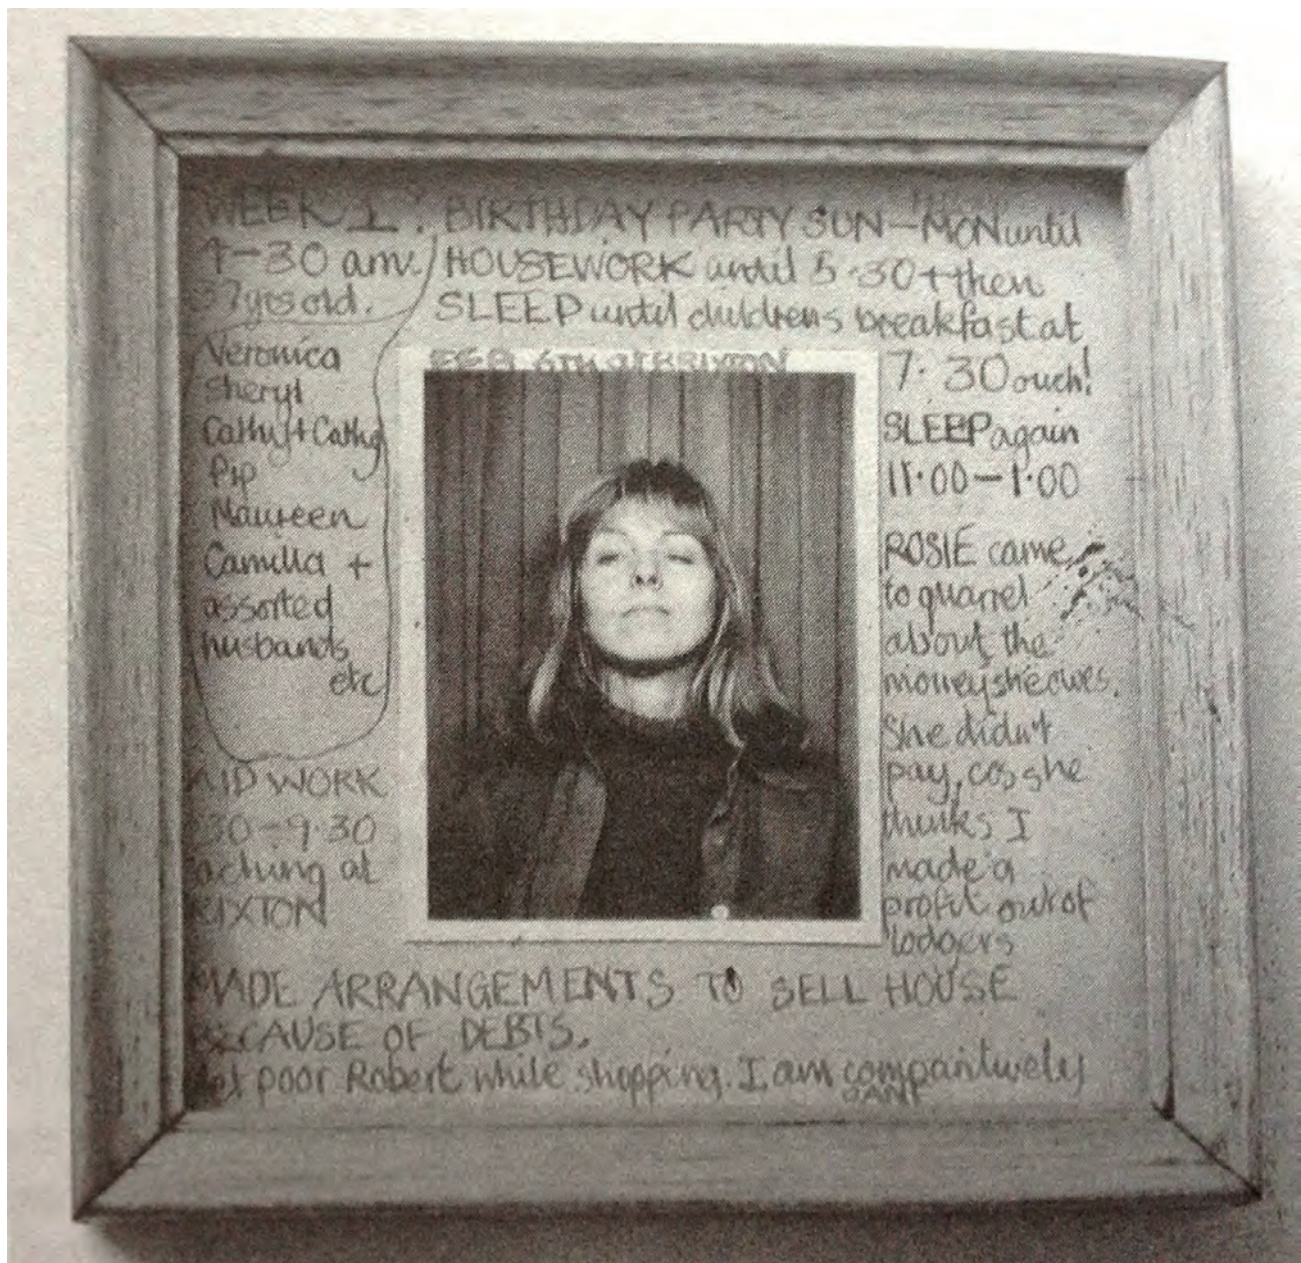 WEEK 1: BIRTHDAY PARTY SUN-MON until
4-30 am. HOUSEWORK until 5.30 + then
37yrs old. SLEEP until childrens breakfast at
7.30 ouch!
SLEEP again
11.00-1.00
Veronica
Sheryl
Cathy + Cathy
Pip
Maureen
Camilla +
assorted
husbands
etc
FEB 6TH at BRIXTON
ROSIE came
to quarrel
about the
money she owes.
She didn't
pay, cos she
thinks I
made a
profit out of
lodgers
AID WORK
30-9.30
aching at
RIXTON
MADE ARRANGEMENTS TO SELL HOUSE
BECAUSE OF DEBTS.
poor Robert while shopping. I am comparitively
SANE